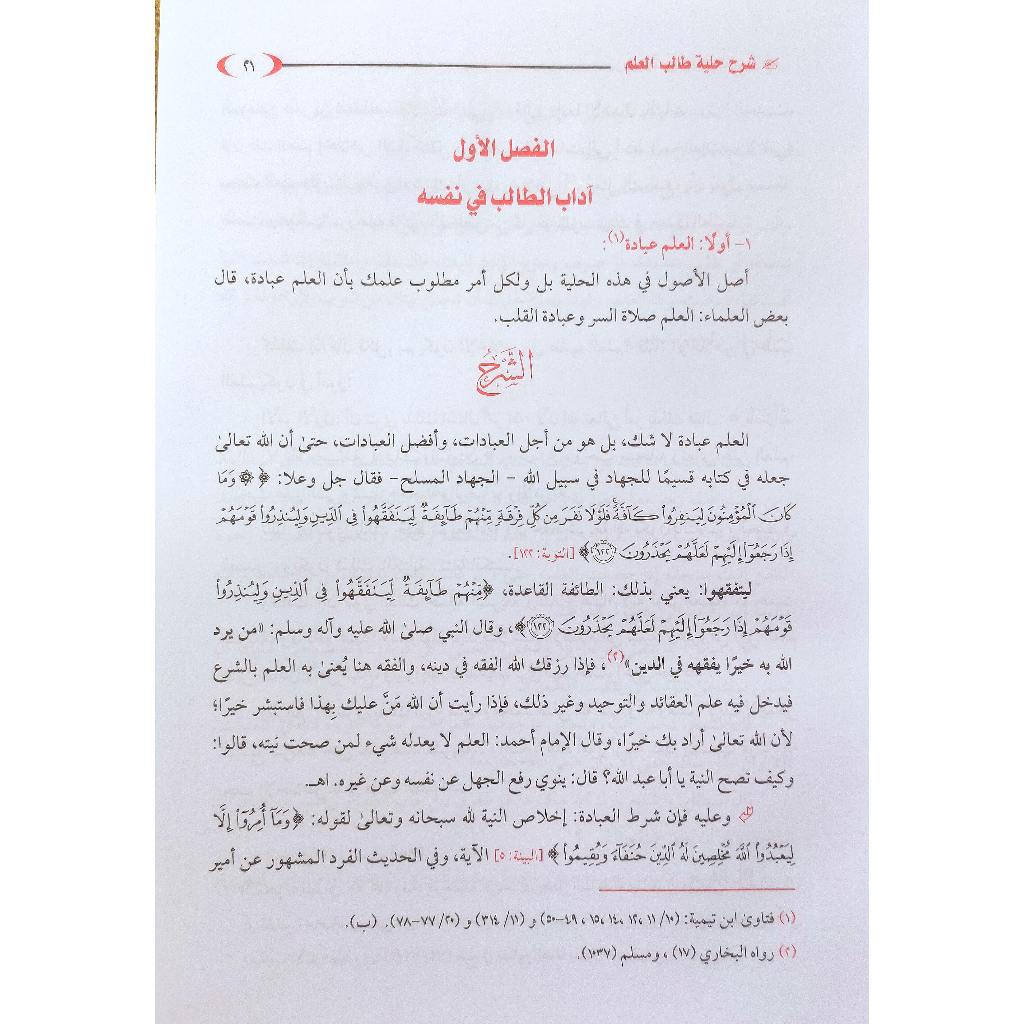 شرح حلية طالب العلم ٢١
الفصل الأول
آداب الطالب في نفسه
١- أولًا: العلم عبادة(١):
أصل الأصول في هذه الحلية بل ولكل أمر مطلوب علمك بأن العلم عبادة، قال
بعض العلماء: العلم صلاة السر وعبادة القلب.
الشَّرْحُ
العلم عبادة لا شك، بل هو من أجل العبادات، وأفضل العبادات، حتىٰ أن الله تعالىٰ
جعله في كتابه قسيمًا للجهاد في سبيل الله - الجهاد المسلح- فقال جل وعلا: ﴿ ۞ وَمَا
كَانَ ٱلْمُؤْمِنُونَ لِيَنفِرُوا۟ كَآفَّةً ۚ فَلَوْلَا نَفَرَ مِن كُلِّ فِرْقَةٍ مِّنْهُمْ طَآئِفَةٌ لِّيَتَفَقَّهُوا۟ فِى ٱلدِّينِ وَلِيُنذِرُوا۟ قَوْمَهُمْ
إِذَا رَجَعُوٓا۟ إِلَيْهِمْ لَعَلَّهُمْ يَحْذَرُونَ ﴿١٢٢﴾﴾ [التوبة: ١٢٢].
ليتفقهوا: يعني بذلك: الطائفة القاعدة، ﴿مِّنْهُمْ طَآئِفَةٌ لِّيَتَفَقَّهُوا۟ فِى ٱلدِّينِ وَلِيُنذِرُوا۟
قَوْمَهُمْ إِذَا رَجَعُوٓا۟ إِلَيْهِمْ لَعَلَّهُمْ يَحْذَرُونَ ﴿١٢٢﴾﴾، وقال النبي صلىٰ الله عليه وآله وسلم: «من يرد
الله به خيرًا يفقهه في الدين»(٢)، فإذا رزقك الله الفقه في دينه، والفقه هنا يُعنىٰ به العلم بالشرع
فيدخل فيه علم العقائد والتوحيد وغير ذلك، فإذا رأيت أن الله مَنَّ عليك بِهذا فاستبشر خيرًا؛
لأن الله تعالىٰ أراد بك خيرًا، وقال الإمام أحمد: العلم لا يعدله شيء لمن صحت نيته، قالوا:
وكيف تصح النية يا أبا عبد الله؟ قال: ينوي رفع الجهل عن نفسه وعن غيره. اهـ.
وعليه فإن شرط العبادة: إخلاص النية لله سبحانه وتعالىٰ لقوله: ﴿وَمَآ أُمِرُوٓا۟ إِلَّا
لِيَعْبُدُوا۟ ٱللَّهَ مُخْلِصِينَ لَهُ ٱلدِّينَ حُنَفَآءَ وَيُقِيمُوا۟﴾ [البينة: ٥] الآية، وفي الحديث الفرد المشهور عن أمير
(١) فتاوىٰ ابن تيمية: (١٠/ ١١، ١٢، ١٤، ١٥، ٤٩-٥٠) و (١١/ ٣١٤) و (٢٠/ ٧٧-٧٨). (ب).
(٢) رواه البخاري (١٧) ، ومسلم (١٠٣٧).